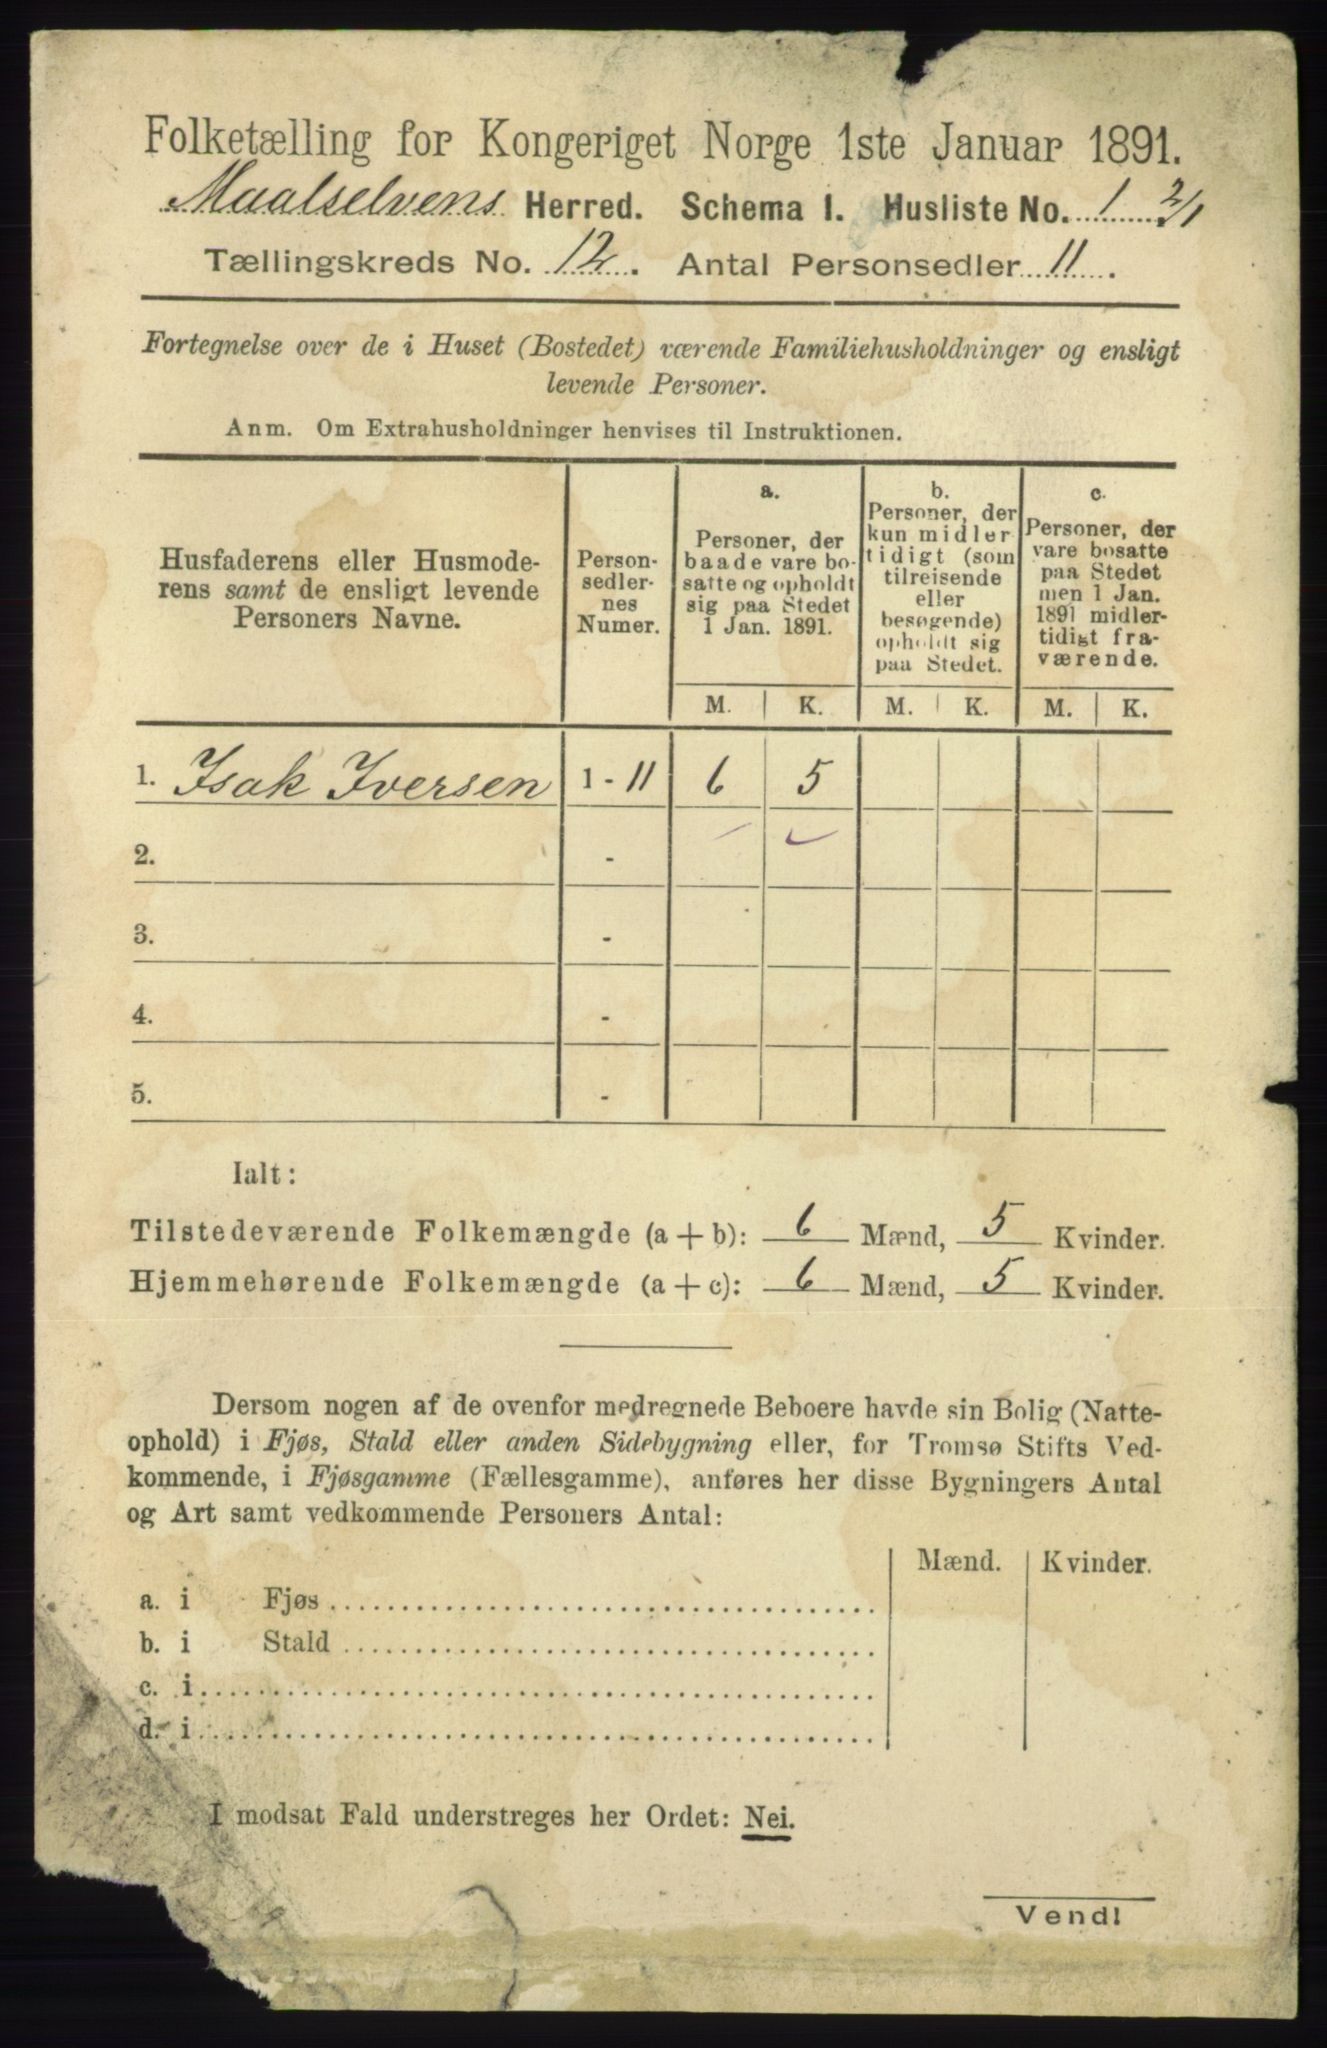 Folketælling for Kongeriget Norge 1ste Januar 1891.
Maalselvens Herred. Schema I. Husliste No. 1 2/1
Tællingskreds No. 12. Antal Personsedler 11.
Fortegnelse over de i Huset (Bostedet) værende Familiehusholdninger og ensligt
levende Personer.
Anm. Om Extrahusholdninger henvises til Instruktionen.
Husfaderens eller Husmode-
rens samt de ensligt levende
Personers Navne.
Person-
sedler-
nes
Numer.
a.
Personer, der
baade vare bo-
satte og opholdt
sig paa Stedet
1 Jan. 1891.
b.
Personer, der
kun midler
tidigt (som
tilreisende
eller
besøgende)
opholdt sig
paa Stedet.
c.
Personer, der
vare bosatte
paa Stedet
men 1 Jan.
1891 midler-
tidigt fra-
værende.
M. K. M. K. M. K.
1. Isak Iversen 1 - 11 6 5
2. -
3. -
4. -
5. -
Ialt:
Tilstedeværende Folkemængde (a + b): 6 Mænd, 5 Kvinder.
Hjemmehørende Folkemængde (a + c): 6 Mænd, 5 Kvinder.
Dersom nogen af de ovenfor medregnede Beboere havde sin Bolig (Natte-
ophold) i Fjøs, Stald eller anden Sidebygning eller, for Tromsø Stifts Ved-
kommende, i Fjøsgamme (Fællesgamme), anføres her disse Bygningers Antal
og Art samt vedkommende Personers Antal:
Mænd. Kvinder.
a. i Fjøs
b. i Stald
c. i
d. i
I modsat Fald understreges her Ordet: Nei.
Vend!